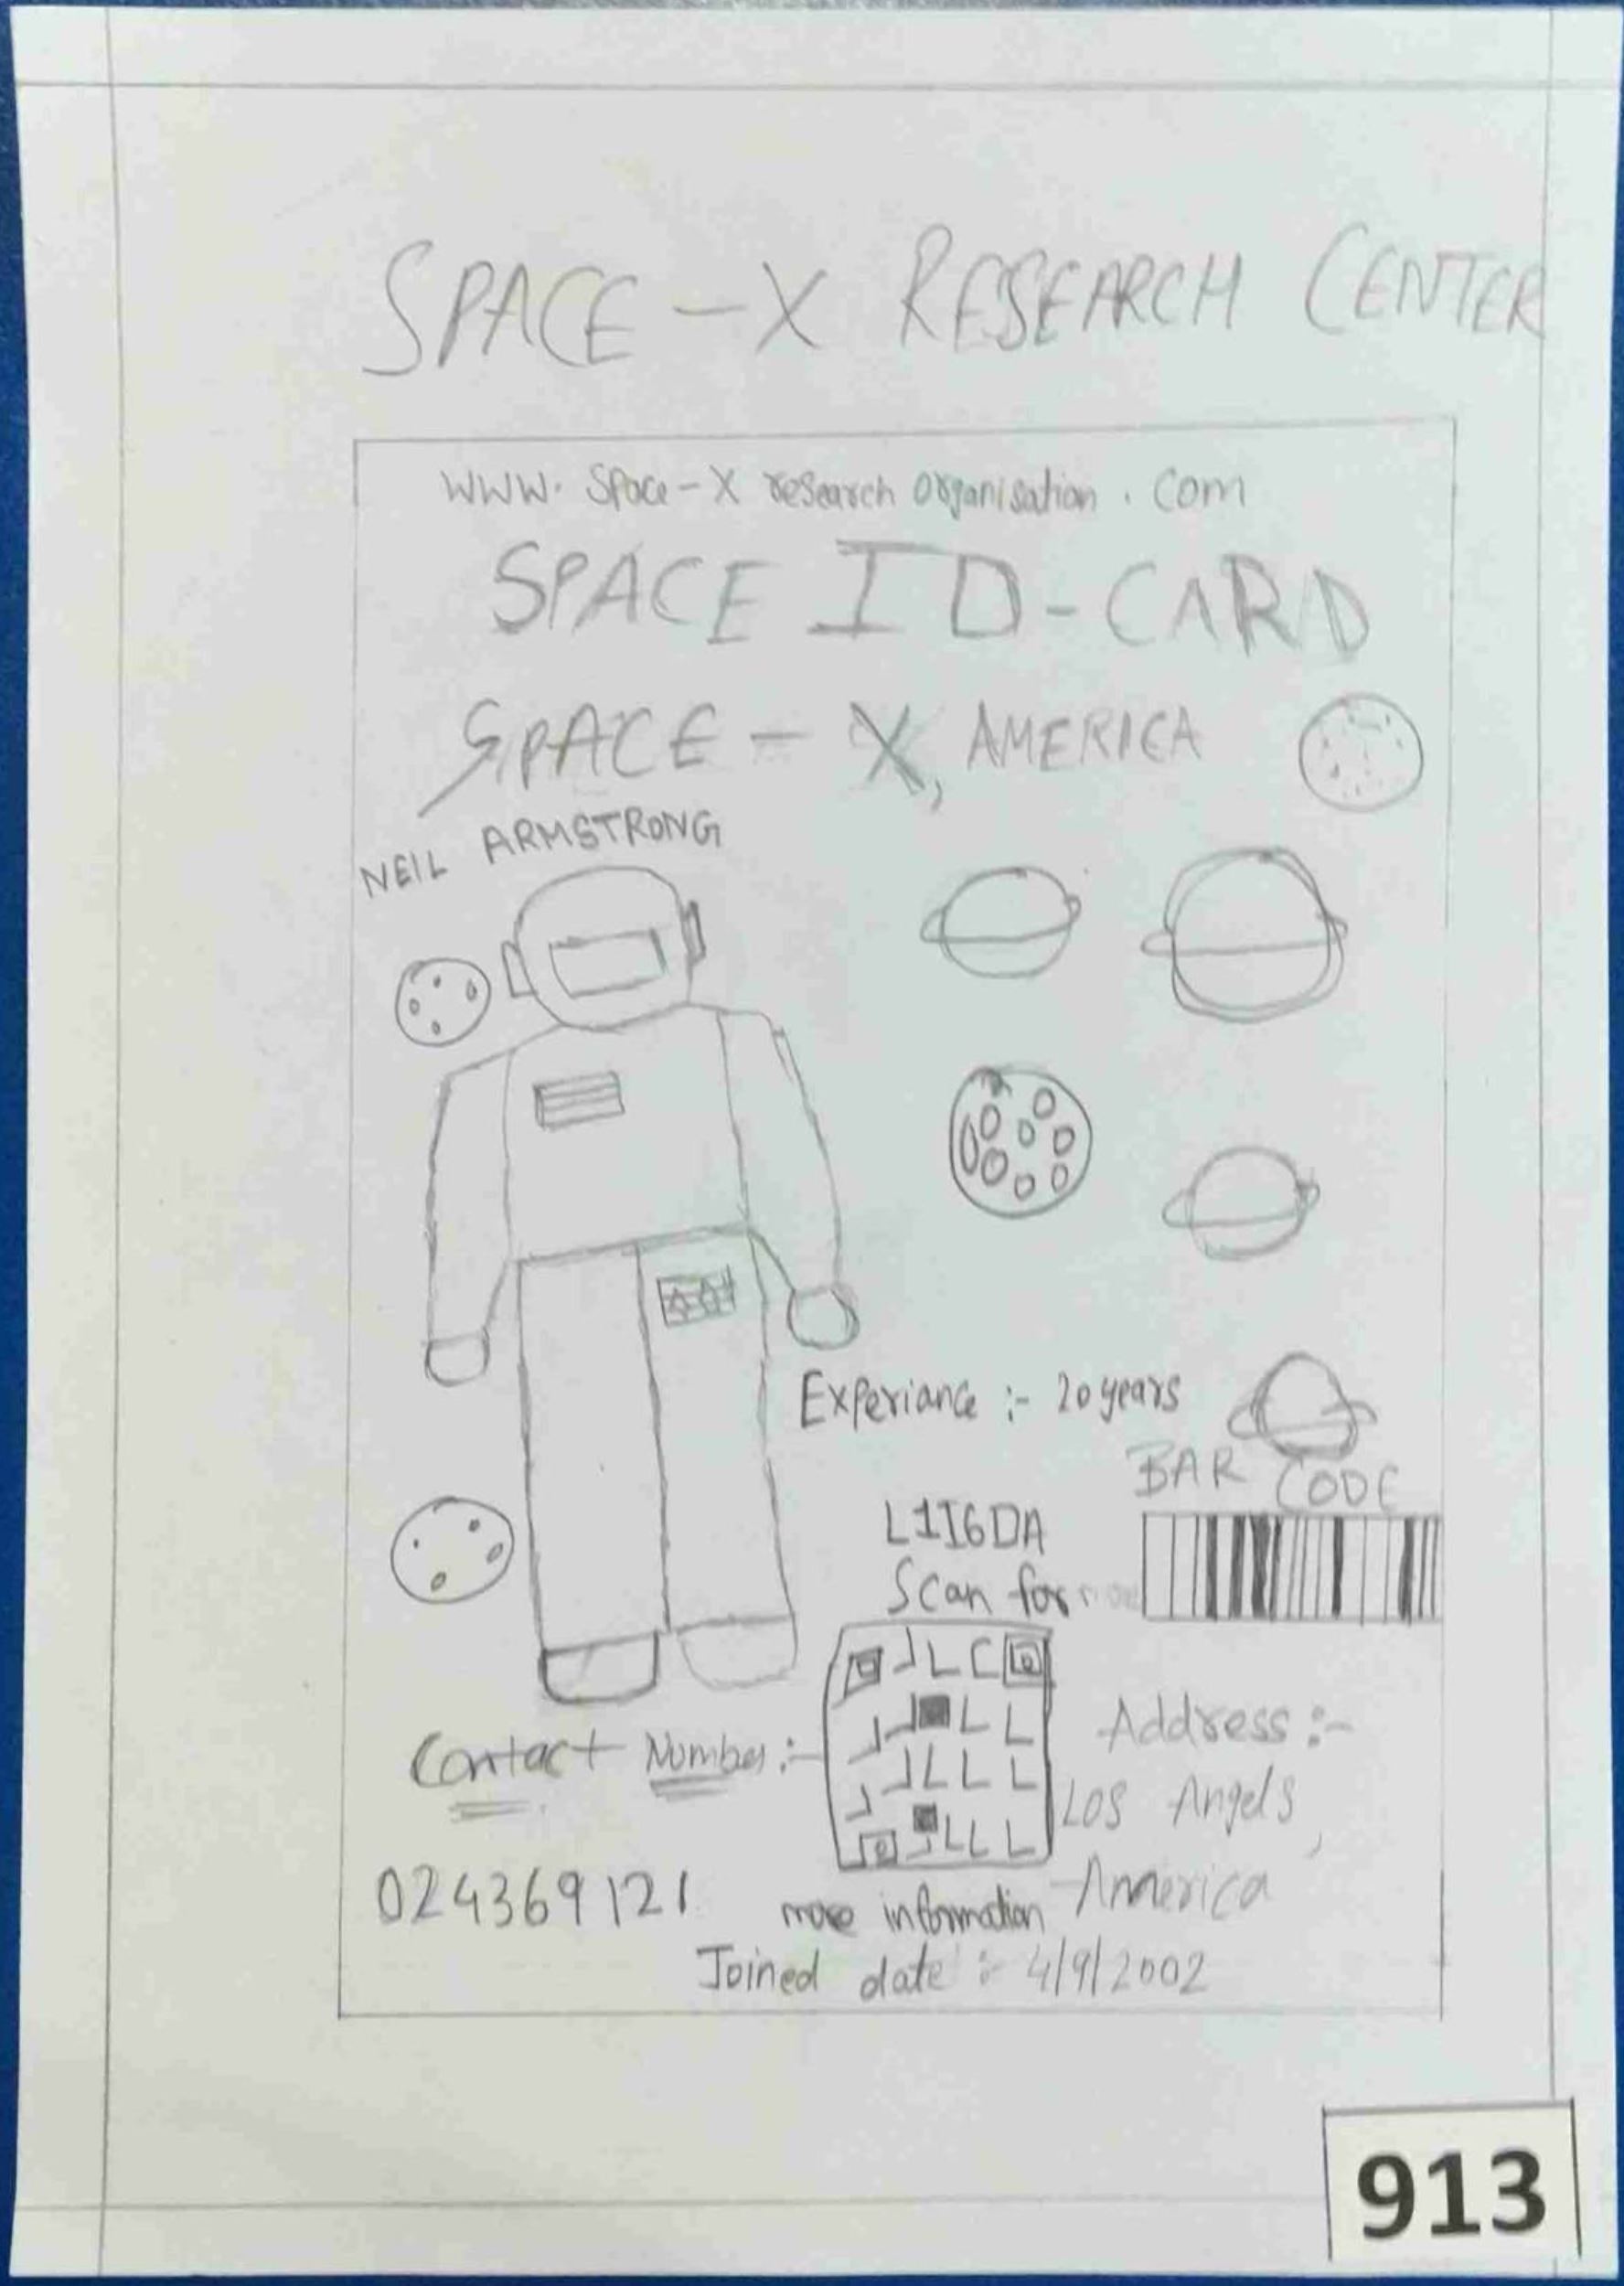 SPACE-X RESEARCH CENTER
www. Space-X research organisation . com
SPACE ID-CARD
SPACE - X, AMERICA
NEIL ARMSTRONG
Experiance :- 20 years
BAR CODE
L1I6DA
Scan for
Contact Number :-
024369121
more information
Address :-
Los Angels,
America
Joined date :- 4/9/2002
913